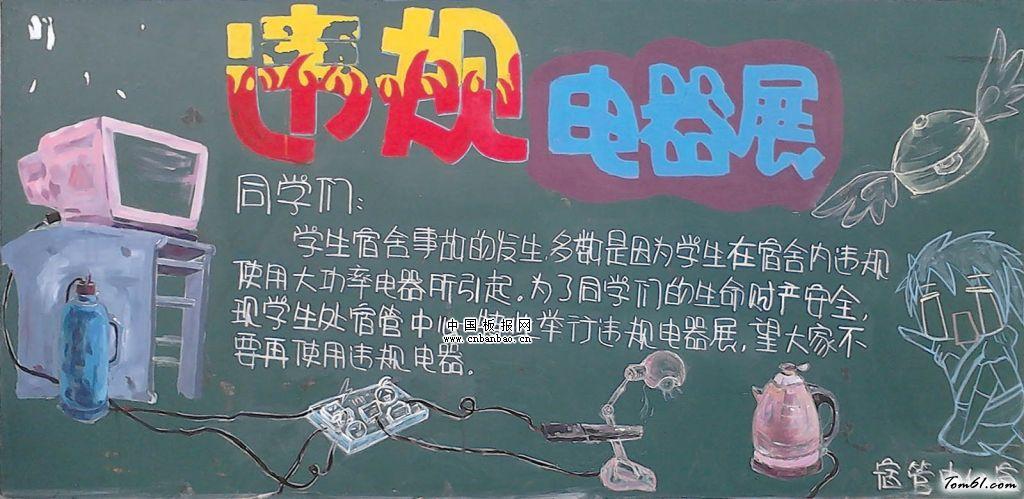 违规
电器展
同学们:
学生宿舍事故的发生,多数是因为学生在宿舍内违规
使用大功率电器所引起。为了同学们的生命财产安全,
现学生处宿管中心 举行违规电器展,望大家不
要再使用违规电器。
中国板报网
www.cnbanbao.cn
宿管中心宣
Tom61.com